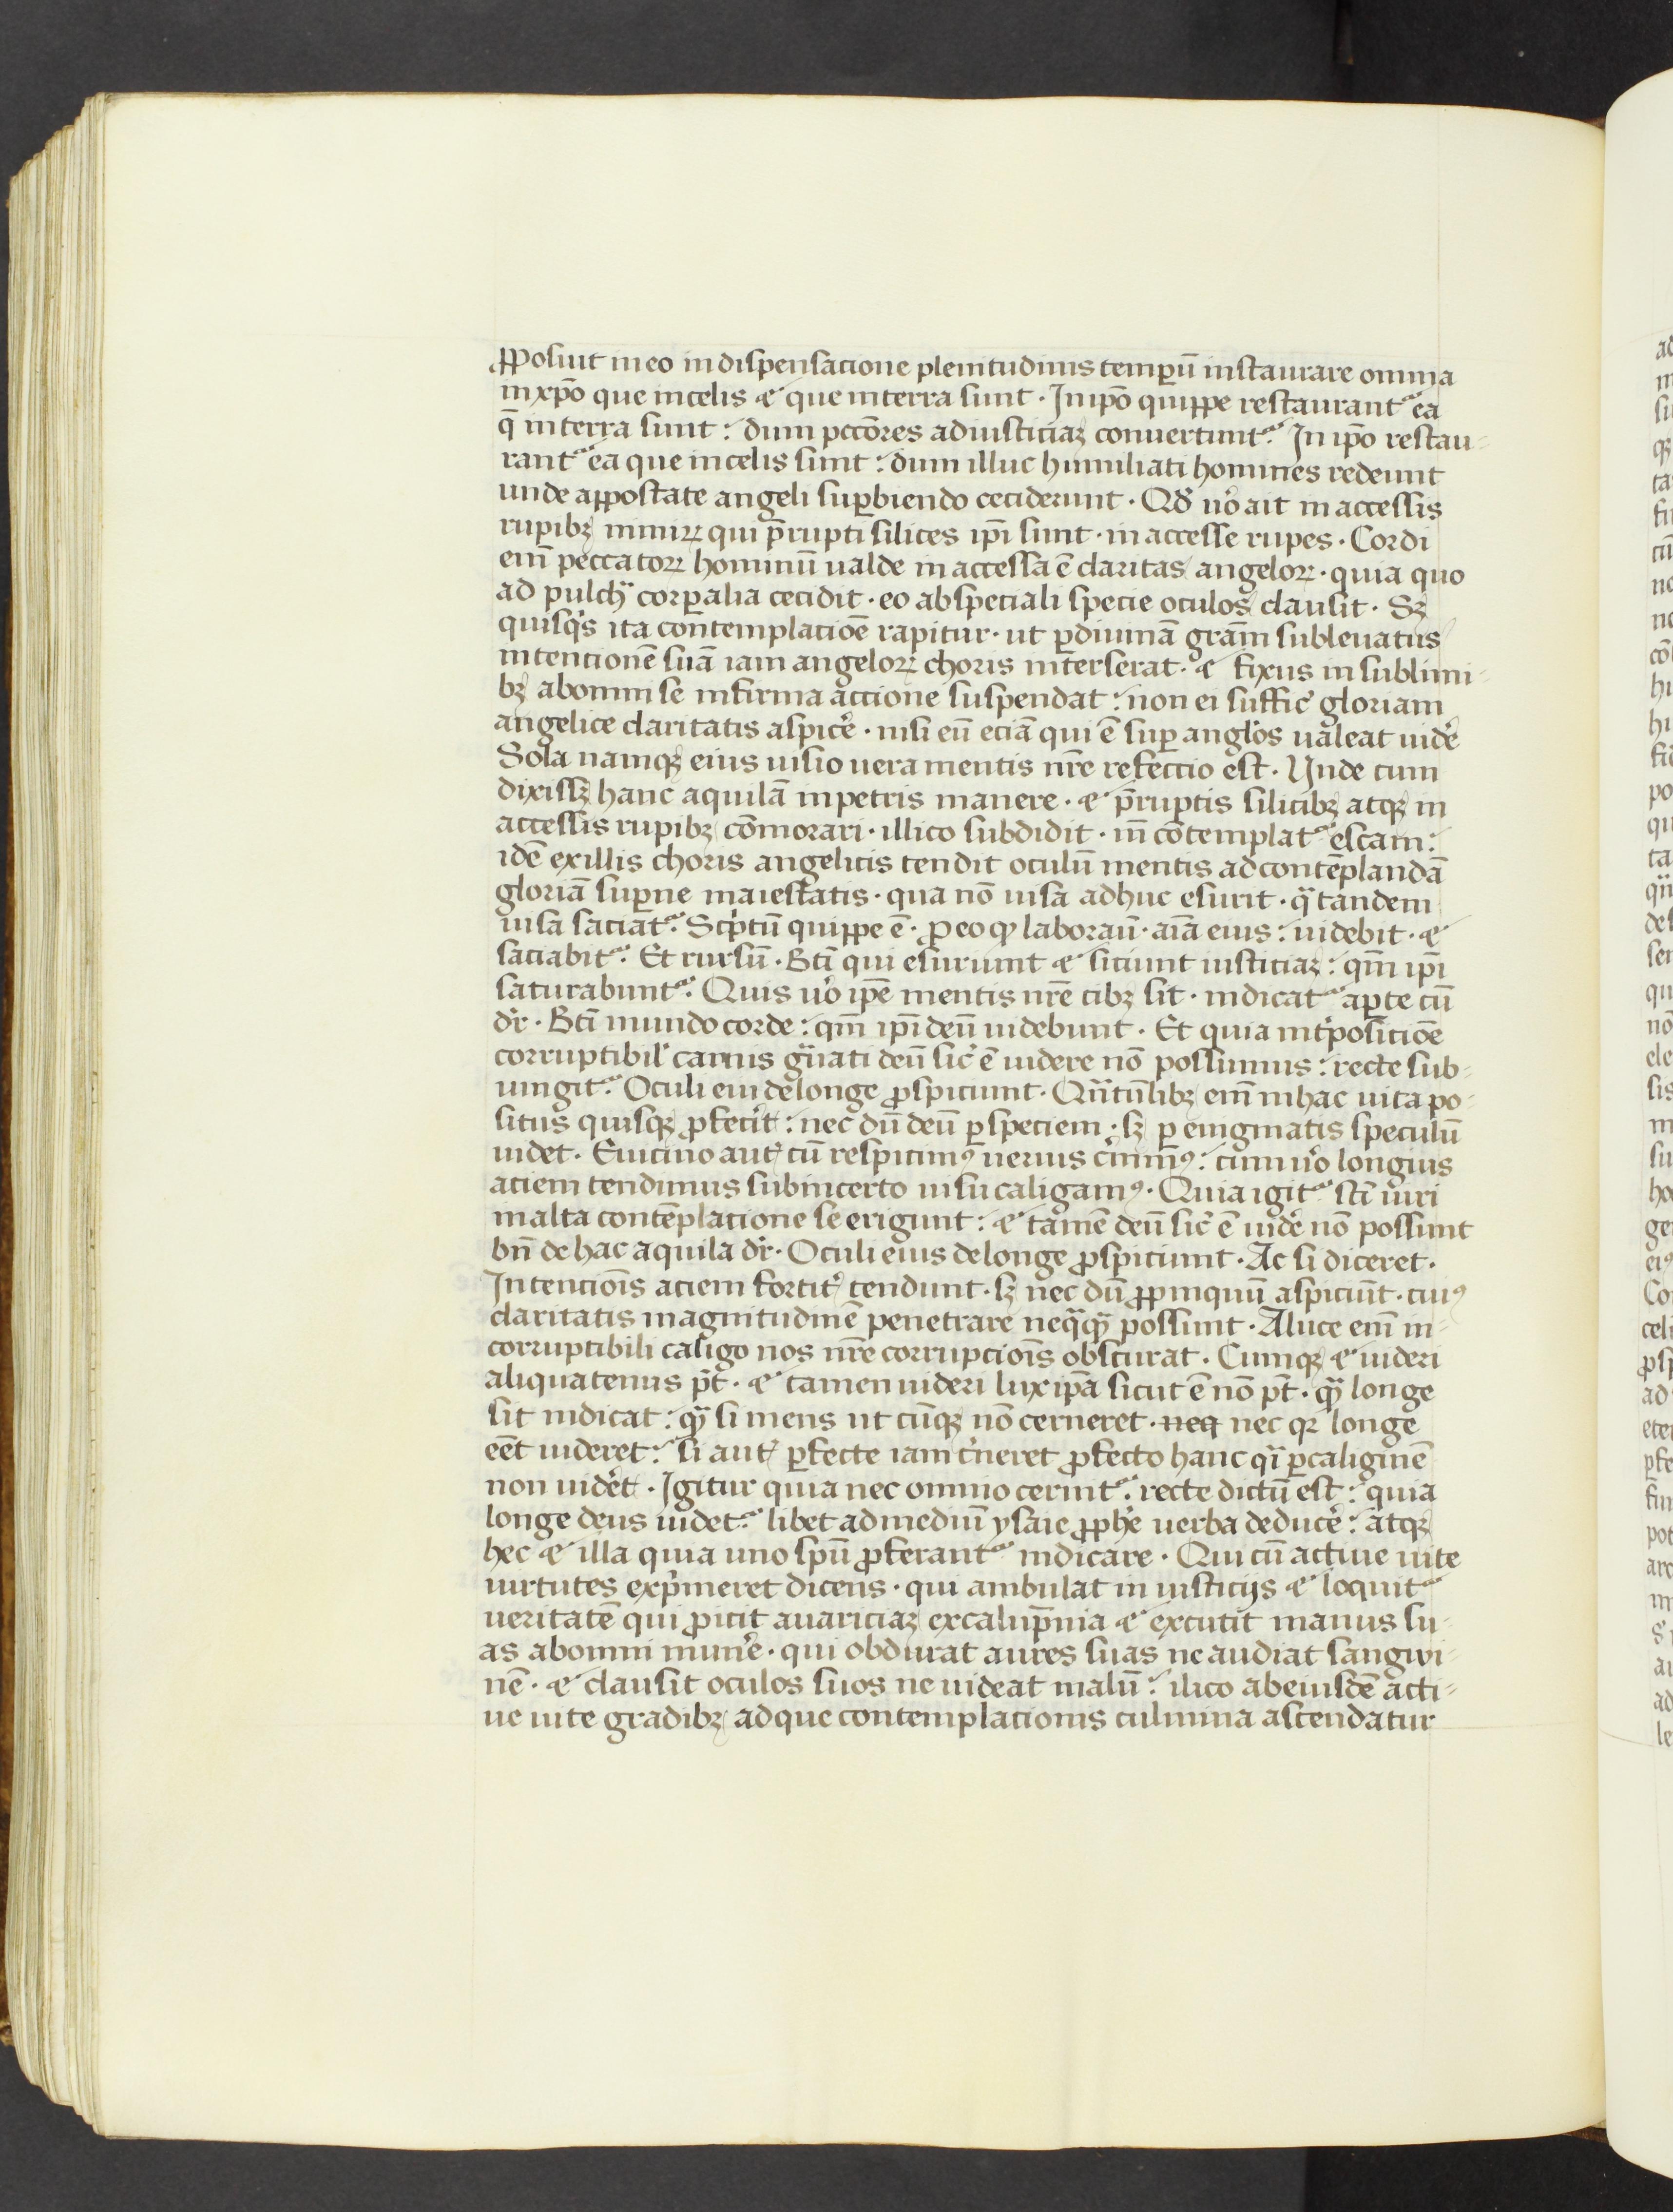 ꝓposuit in eo in dispensacione plenitudinis temꝑū instaurare omnia
in xp̄o que in celis ⁊ que in terra sunt · In ip̄o quippe restaurant᷑ ea
q̄ in terra sunt : dum pctōres ad iusticiaꝫ conuertunt᷑. In ip̄o restau-
rant᷑ ea que in celis sunt : dum illuc humiliati homines redeunt
unde appostate angeli suꝑbiendo ceciderunt · Qd̓ u̓o ait in accessis
rupibꝫ nimiꝝ qui p̄rupti silices ip̄i sunt · in accesse rupes · Cordi
em̄ peccatoꝝ hominū ualde in accessa ē claritas angeloꝝ · quia quo
ad pulchͣ corꝑalia cecidit · eo ab speciali specie oculos clausit · Sꝫ
quisqͥs ita contemplacioē rapitur · ut ꝑ diuinā grām subleuatus
intencionē suā iam angeloꝝ choris interserat · ⁊ fixus in sublimi-
bꝫ ab omni se infirma accione suspendat : non ei suffic̓ gloriam
angelice claritatis aspice̓ · nisi eū eciā qui ē suꝑ angl̓os ualeat uide̓
Sola namqꝫ eius uisio uera mentis nr̄e refeccio est · Unde cum
dixissꝫ hanc aquilā in petris manere · ⁊ p̄ruptis silicibꝫ atqꝫ in
accessis rupibꝫ cōmorari · illico subdidit · in̄ cōtemplat᷑ escam :
idē ex illis choris angelicis tendit oculū mentis ad contēplandā
gloriā suꝑne maiestatis · qua nō uisa adhuc esurit · qͣ tandem
uisa saciat᷑. Scͥptū quippe ē · ꝓ eo ꝙ laborau̅ · aīa eius : uidebit · ⁊
saciabit᷑. Et rursū · Bt̄i qui esuriunt ⁊ siciunt iusticiaꝫ : qm̄ ip̄i
saturabunt᷑. Quis u̓o ip̄e mentis nr̄e cibꝫ sit · indicat᷑ aꝑte cū
dr̓ · Bt̄i mundo corde : qm̄ ip̄i deū uidebunt · Et quia int̓posicioē
corruptibil̓ carnis gͣuati deū sic̓ ē uidere nō possumus : recte sub-
iungit᷑. Oculi eiu de longe ꝓspiciunt · Qͣntūlibꝫ em̄ in hac uita po-
situs quisqꝫ ꝓfecͥt : nec dū deū ꝑ speciem · sꝫ ꝑ enigmatis speculū
uidet · E uicino aut̓ cū respicimꝰ uerius c̓nimꝰ : cum u̓o longius
aciem tendimus sub incerto uisu caligamꝰ · Quia igit᷑ sc̄i uiri
malta contēplacione se erigunt : ⁊ tamē deū sic̓ ē uide̓ nō possunt
bn̄ de hac aquila dr̓ · Oculi eius de longe ꝓspiciunt · Ac si diceret ·
Intencioīs aciem fortit̓ tendunt · sꝫ nec dū ꝓpinquū aspiciūt · cuiꝰ
claritatis magnitudinē penetrare neqͣqͣꝫ possunt · A luce em̄ in-
corruptibili caligo nos nr̄e corrupcioīs obscurat · Cumqꝫ ⁊ uideri
aliquatenus pt̄ · ⁊ tamen uideri lux ip̄a sicut ē nō pt̄ · qͣꝫ longe
sit indicat : qͣꝫ si mens ut cūqꝫ nō cerneret · neq nec qꝛ longe
eēt uideret : si aut̓ ꝑfecte iam c̓neret ꝓfecto hanc qͣi ꝑ caliginē
non uide̓t · Igitur quia nec omnio cernit᷑. recte dictū est : quia
longe deus uidet᷑. libet ad mediū ysaie ꝓph̓e uerba deduce̓ : atqꝫ
hec ⁊ illa quia uno spū ꝓferant᷑ indicare · Qui cū actiue uite
uirtutes expͥmeret dicens · qui ambulat in iusticijs ⁊ loquit᷑
ueritatē qui ꝓicit auariciaꝫ ex calup̄nia ⁊ excutit manus su-
as ab omni mune̓ · qui obdurat aures suas ne audiat sangwi-
nē · ⁊ clausit oculos suos ne uideat malū : ilico ab eiusdē acti-
ue uite gradibꝫ ad que contemplacionis culmina ascendatur